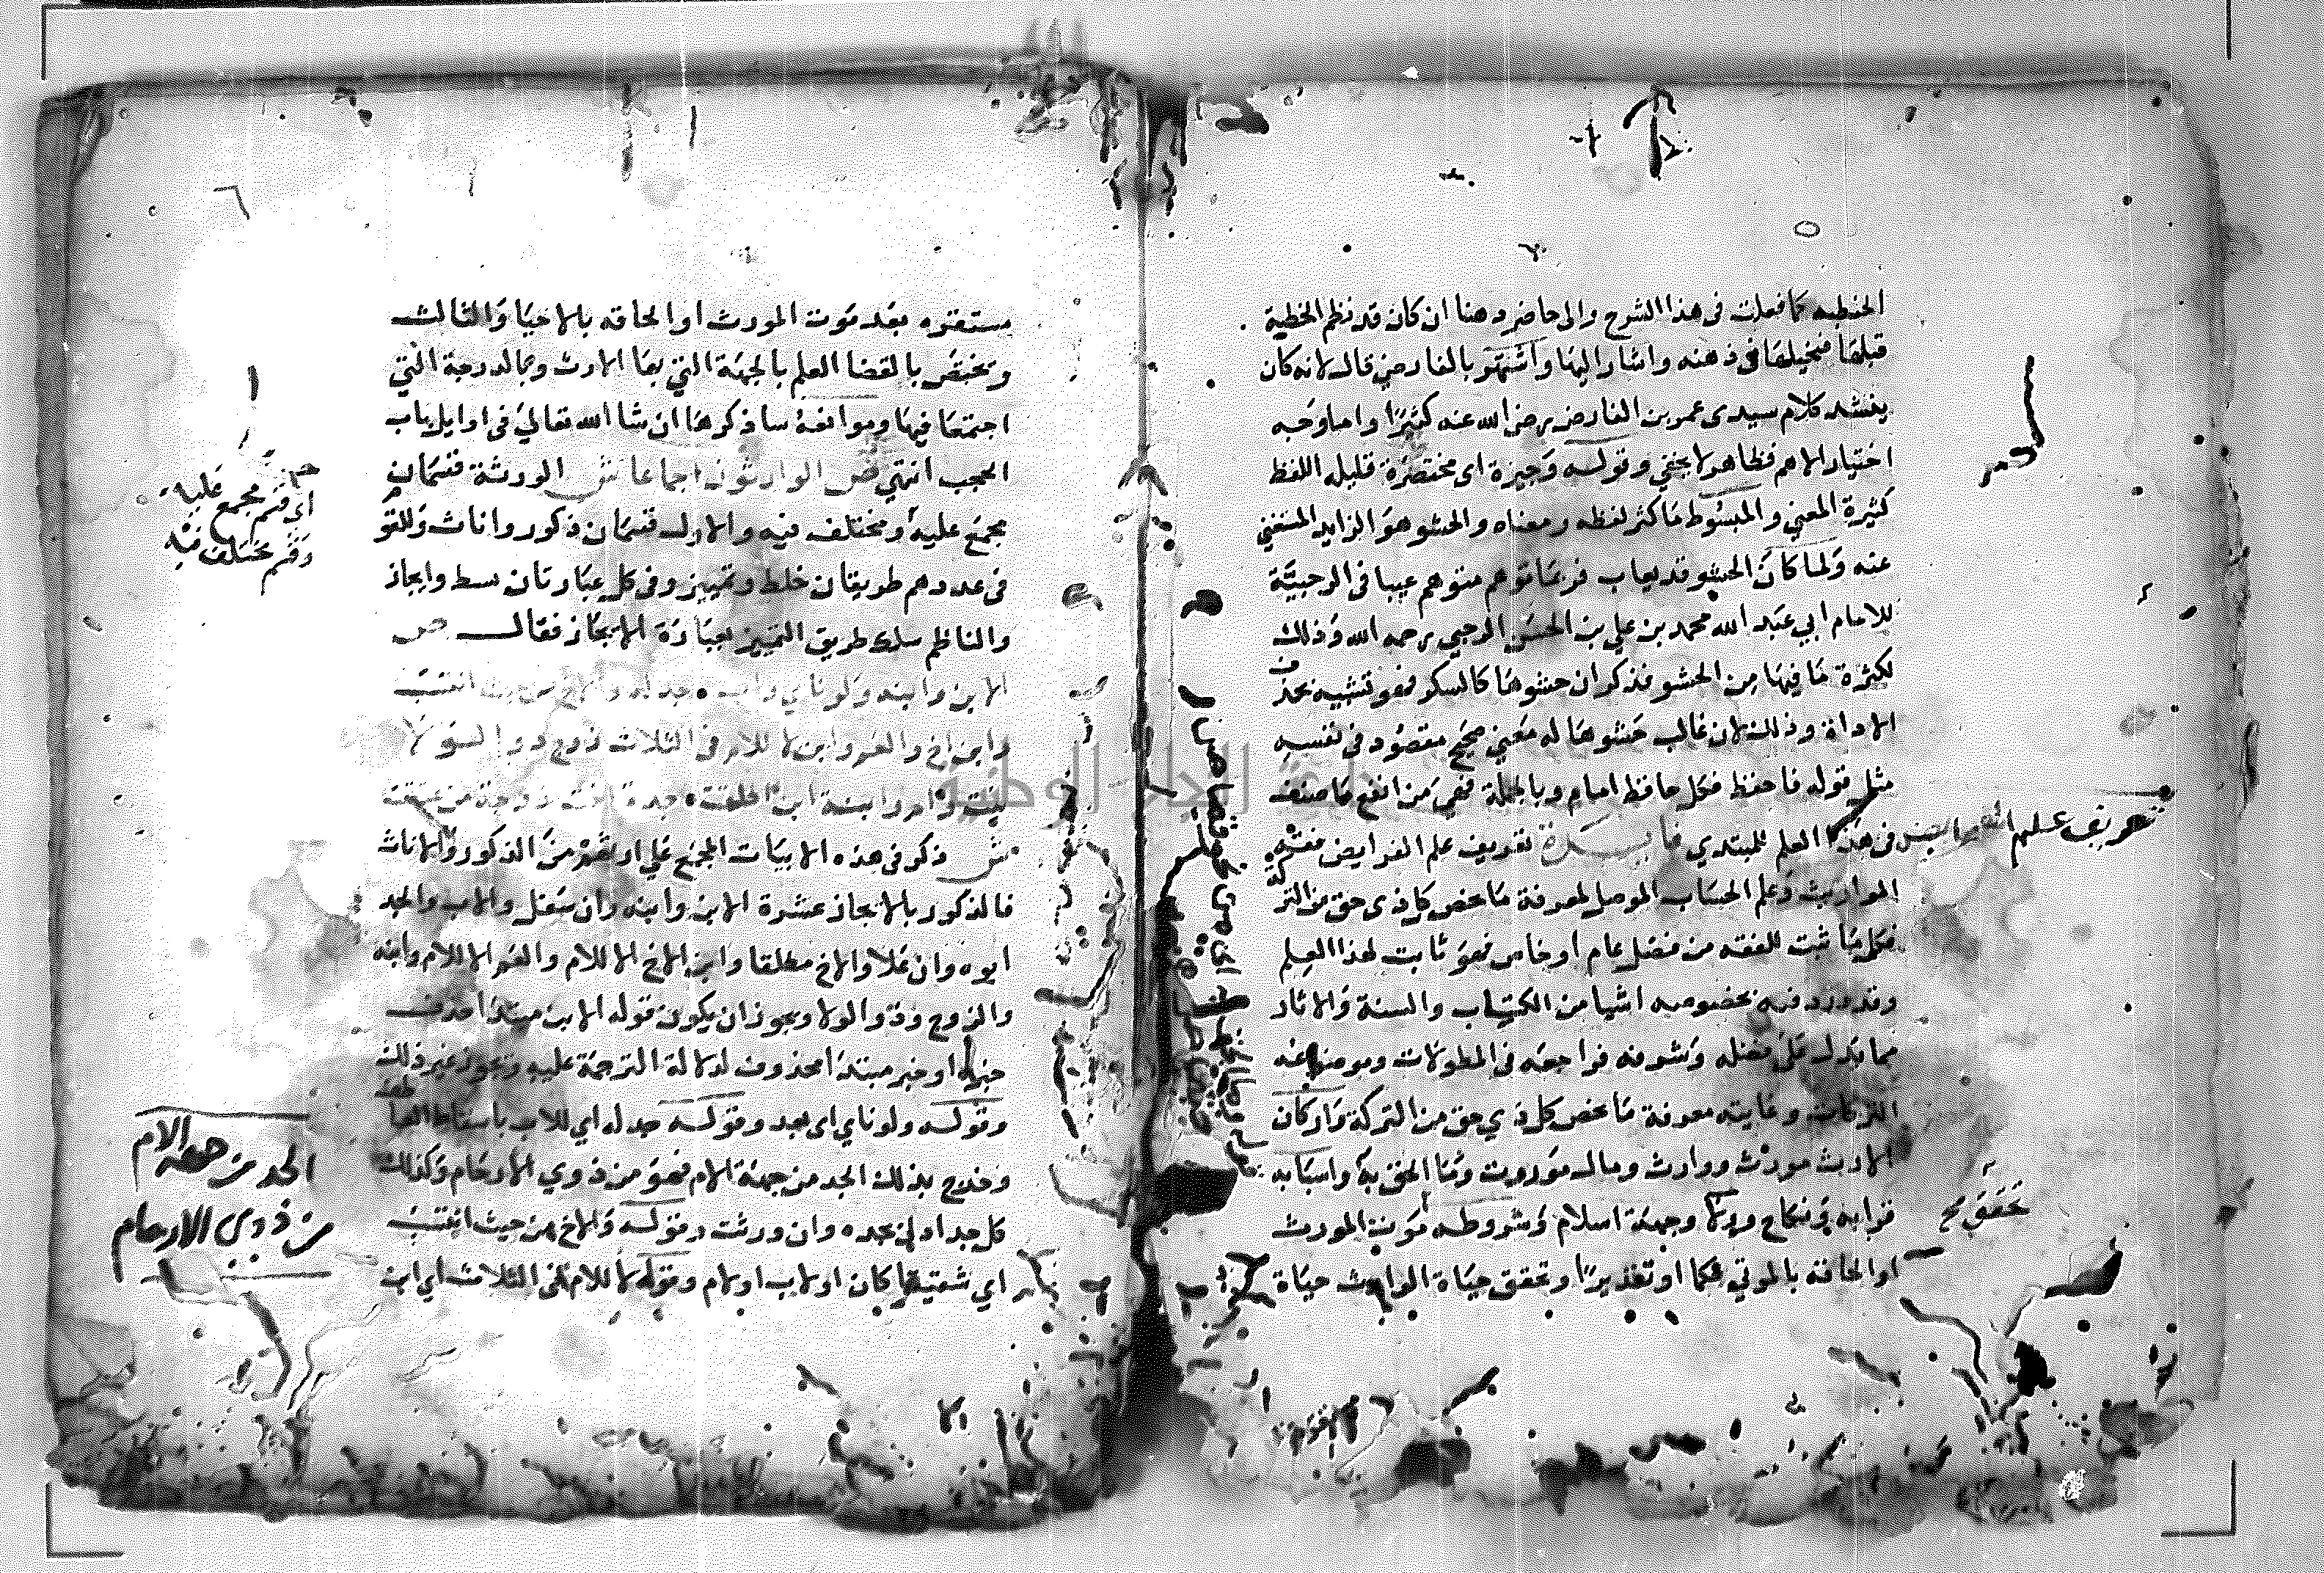 الخطبه كما فعلت في هذا الشرح والى حاضر ذهنا ان كان قد نظم الخطبة
قبلها فتخيلها في ذهنه واشار اليها واشتهر بالفارضي قال لانه كان
ينشد كلام سيدى عمر بن الفارض رضى الله عنه كثيرًا واما وجه
اختيار الاهم فظاهر لا يخفي وقوله وجيزة اى مختصرة قليله اللفظ
كثيرة المعني والمبسوط ما كثر لفظه ومعناه والحشو هو الزايد المستغني
عنه ولما كان الحشو قد يعاب فربما توهم متوهم عيبا في الرحبية
للامام ابي عبد الله محمد بن علي بن الرحبي رحمه الله وذلك
لكثرة ما فيها من الحشو فذكر ان حشوها كالسكر فهو تشبيه بحذف
الاداة وذلك لان غالب حشوها له معني صحيح مقصود في نفسه
مثل قوله فاحفظ فكل حافظ امام وبالجملة فهي من انفع ما صنف
في هذا العلم للمبتدي فايـــدة تعريف علم الفرايض فقه
تعريف علم الفرايض
المواريث وعلم الحساب الموصل لمعرفة ما يخص كل ذى حق من التركة
فكل ما ثبت للفقه من فضل عام او خاص فهو ثابت لهذا العلم
وقد ورد فيه بخصوصه اشيا من الكتاب والسنة والاثار
مما يدل على فضله وشرفه فراجعه في المطولات وموضوعه
التركات وغايته معرفة ما يخص كل ذي حق من التركة واركان
الارث مورث ووارث ومال موروث وما الحق به واسبابه
قرابه ونكاح وولا وجهة اسلام وشروطه موت المورث
او الحاقه بالموتي حكما او تقديرًا وتحقق حياة الوارث حياة
مستقره بعد موت المورث او الحاقه بالاحيا والثالث
ويختص بالقضا العلم بالجهة التي بها الارث وبالدرجة التي
اجتمعا فيها وموانعه ساذكرها ان شا الله تعالي في اوايل باب
الحجب انتهي ص الوارثون اجماعا ش الورثة قسمان
مجمع عليه ومختلف فيه والاول قسمان ذكور واناث وللقو
اي قسم مجمع عليه
وقسم مختلف فيه
في عددهم طريقان خلط وتمييز وفي كل عبارتان بسط وايجاز
والناظم سلك طريق التمييز بعبارة الايجاز فقال ص
الابن وابنه ولو ناي واب جد له والاخ من حيث انتسب
وابن اخ والعم وابن لا للام في الثلاث زوج ذو الولا
بنت وام وابنة ابن جدة اخت زوجة من عتقت
ش ذكر في هذه الابيات المجمع علي ارثهم من الذكور والاناث
فالذكور بالايجاز عشرة الابن وابنه وان سفل والاب والجد
ابوه وان علا والاخ مطلقا وابن الاخ لا للام والعم لا للام وابنه
والزوج وذو الولا ويجوز ان يكون قوله الابن مبتدا حذف
خبره او خبر مبتدا محذوف لدلالة الترجمة عليه ويجوز غير ذلك
وقوله ولو ناي اى بعد وقوله جد له اي للاب باسقاط العاطف
وخرج بذلك الجد من جهة الام فهو من ذوي الارحام وكذلك
الجد من جهة الام
من ذوى الارحام
كل جد ادلى بجده وان ورثت وقوله والاخ من حيث انتسب
اي شقيقا كان او لاب او لام وقوله لا للام في الثلاث اي ابن